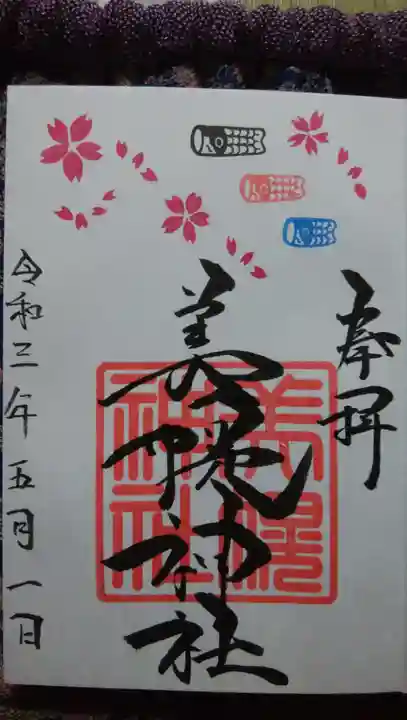 奉拝
美幌神社
美幌神社
令和三年五月一日